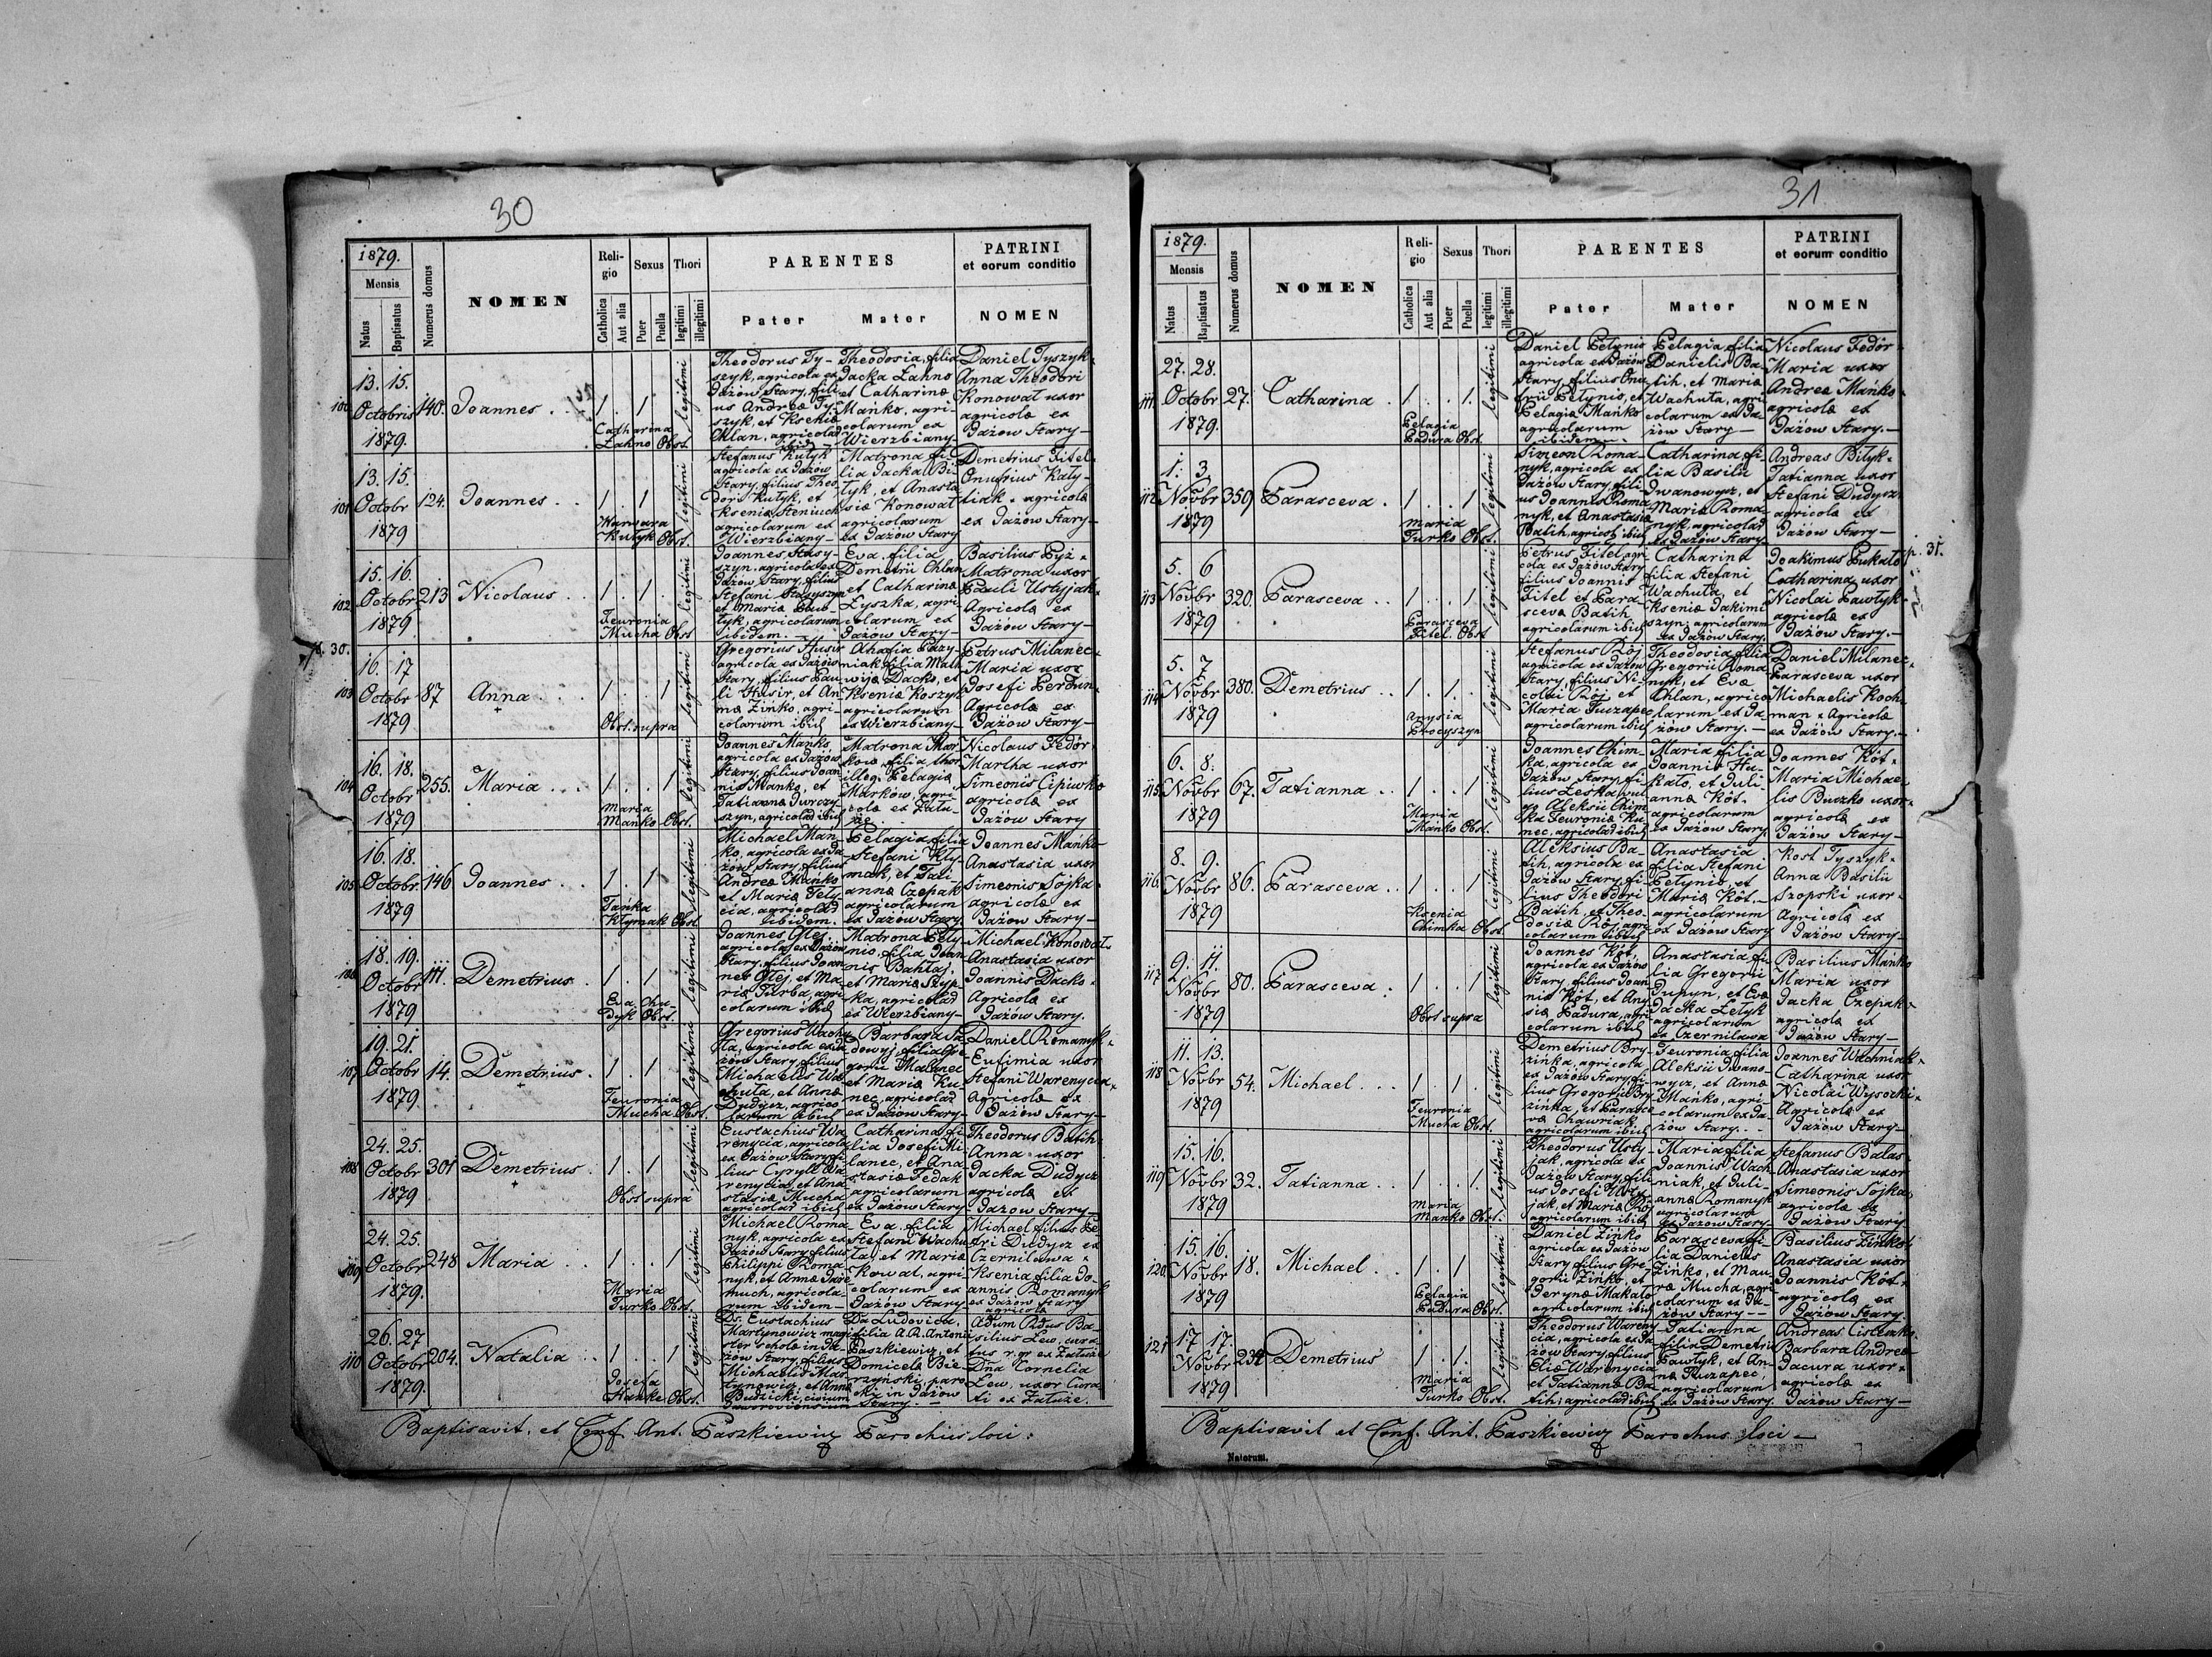 30
1879.
Mensis
Natus
Baptisatus
Numerus domus
NOMEN
Reli-
gio
Catholica
Aut alia
Sexus
Puer
Puella
Thori
legitimi
illegitimi
PARENTES
Pater
Mater
PATRINI
et eorum conditio
NOMEN
100
13. 15.
Octobris
1879.
140.
Joannes
1 . 1
Catharina
Łahno Obst.
legitimi
Theodorus Ty-
szyk, agricola ex
Jażów Stary, fili-
us Andreæ Ty-
szyk, et Kseniæ
Chlan, agricolar
ibid
Theodosia, filia
Jacka Łahno
et Catharinæ
Mańko, agri-
colarum ex
Wierzbiany
Daniel Tyszyk
Anna Theodori
Konowal uxor
agricolæ ex
Jażow Stary
101
13. 15.
Octobr
1879
124.
Joannes
1 . 1
Warwara
Kutyk Obst.
legitimi
Stefanus Kutyk
agricola ex Jażów
Stary, filius Theo-
dori Kutyk, et
Kseniæ Steniuch
agricolarum ex
Wierzbiany
Matrona fi-
lia Jacka Bi-
tyk, et Anasta
siæ Konowal
agricolarum
ex Jażów Stary
Demetrius Fitel
Onufrius Katy-
tiak agricolæ
ex Jażów Stary
102
15. 16.
Octobr
1879
213
Nicolaus
1 . 1
Feuronia
Mucha Obst
legitimi
Joannes Stasy-
szyn, agricola ex
Jażów Stary, filius
Stefani Stasyszyn
et Mariæ
tyk, agricolarum
ibidem.
Eva, filia
Demetrii Chlan
et Catharinæ
Łyszka, agri-
colarum ex
Jażów Stary
Basilius Pyż
Matrona uxor
Pauli Ustyjak
Agricolæ ex
Jażów Stary
p. 30.
103
16. 17
Octobr
1879
87
Anna
1 . . 1
Obst. supra
legitimi
Gregorius Husir
agricola ex Jażów
Stary, filius Pau-
li Husir, et An-
næ Zińko, agri-
colarum ibid
Ahafia Pazy-
niak filia Math
wija Dacko, et
Kseniæ Koszy
agricolarum
ex Wierzbiany
Petrus Milanec
Maria uxor
Josefi
Agricolæ ex
Jażow Stary
104
16. 18.
Octobr
1879
255.
Maria
1 . . 1
Maria
Mańko Obst.
legitimi
Joannes Mańko
agricola ex Jażów
Stary, filius Joan
nis Mańko, et
Tatiannæ Jurczy-
szyn, agricolar ibid
Matrona Mar
kow, filia thor
illeg. Pelagiæ
Marków, agri-
colæ ex Zału-
że.
Nicolaus Fedór
Martha uxor
Simeonis Cipiwko
agricolæ ex
Jażow Stary
105
16. 18.
Octobr.
1879
146
Joannes
1 . 1
Tańka
Klymak Obst.
legitimi
Michael Mań
ko, agricola ex Ja
żów Stary, filius
Andreæ Mańko
et Mariæ Fety-
cia, agricolar
ibidem.
Pelagia, filia
Stefani Kly-
mak, et Tati-
annæ Czepak
agricolarum
ex Jażów Stary
Joannes Mańko
Anastasia uxor
Simeonis Sojka
agricolæ ex
Jażow Stary
106
18. 19.
Octobr
1879
111.
Demetrius
1 . 1
Eva Chu-
dyk Obst.
legitimi
Joannes Olej
agricola ex Jażów
Stary, filius Joan
nes Olej, et Ma-
riæ Turba, agri
colarum ibid
Matrona Pety
nio, filia Joan
nis Bahtaj
et Mariæ Szyp-
ka, agricolar
ex Wierzbiany
Michael Konowal
Anastasia uxor
Joannis Dacko
Agricolæ ex
Jażów Stary.
107
19. 21
Octobr
1879
14.
Demetrius
1 . 1
Feuronia
Mucha Obst.
legitimi
Gregorius Wachu
ta, agricola ex Ja
żów Stary, filius
Michaelis Wa
chuta, et Annæ
Dudycz, agrico
larum ibid
Barbara Sa
dowyj, filia Gre
gorii Malanec
et Mariæ Ku-
nec, agricolar
ex Jażów Stary
Daniel Romanyk
Eufimia uxor
Stefani Warenycia
Agricolæ ex
Jażów Stary
108
24. 25.
Octobr
1879
301
Demetrius
1 . 1
Obst supra
legitimi
Eustachius Wa
renycia, agricola
ex Jażów Stary, fi
lius Cyrylli Wa
renycia, et Ana
stasiæ Mucha
agricolar ibid
Catharina fi-
lia Josefi Mi-
lanec, et Ana
stasiæ Fedak
agricolarum
ex Jażów Stary
Theodorus Batih
Anna uxor
Jacka Dudycz
agricolæ ex
Jażow Stary
109
24. 25.
Octobr
1879.
248
Maria
1 . . 1
Maria
Turko Obst.
legitimi
Michael Roma
nyk, agricola ex
Jażów Stary filius
Philippi Roma
nyk, et Annæ Jare
much, agricola-
rum ibidem
Eva, filia
Stefani Wachu
ta, et Mariæ
Kowal, agri-
colarum ex
Jażów Stary
Michael filius Pe
tri Dudycz ex
Czernilawa
Ksenia filia Jo-
annis Romanyk
ex Jażów Stary
agricolæ
110
26. 27
Octobr
1879.
204.
Natalia
1 . . 1
Josefa
Hanke Obst.
legitimi
Ds. Eustachius
Martynowicz magi
ster scholæ in Ja-
żów Stary, filius
Michaelis Mar
tynowicz, et Annæ
Budzicki, civium
Javoroviensium
Da Ludovica,
filia A. R. Antonii
Paszkiewicz, et
Domicelæ Bie
rzyński, paro
chi in Jażów
Stary.
Adum Rdus Ba
silius Lew, cura
tus r. gr ex Załuże
Dna Cornelia
Lew, uxor Cura
ti ex Załuże.
Baptisavit, et Conf. Ant. Paszkiewicz Parochus loci:
31
1879.
Mensis
Natus
Baptisatus
Numerus domus
NOMEN
Reli-
gio
Catholica
Aut alia
Sexus
Puer
Puella
Thori
legitimi
illegitimi
PARENTES
Pater
Mater
PATRINI
et eorum conditio
NOMEN
111
27. 28.
Octobr
1879.
27.
Catharina
1 . . 1.
Pelagia
Padura Obst.
legitimi
Daniel Petynio
agricola ex Jażów
Stary, filius Onu
frii Petynio, et
Pelagiæ Mańko
agricolarum
ibidem
Pelagia, filia
Danielis Ba
tih, et Mariæ
Wachuta, agri
colarum ex Ja-
żów Stary
Nicolaus Fedór
Maria uxor
Andreæ Mańko
agricolæ ex
Jażow Stary.
112
1. 3
Novbr
1879
359
Parasceva
1 . . 1
Maria
Turko Obst.
legitimi
Simeon Roma-
nyk, agricola ex
Jażów Stary, fili-
us Joannis Roma
nyk, et Anastasiæ
Batih, agricol. ibid
Catharina, fi-
lia Basilii
Iwanowycz, et
Mariæ Roma
nyk, agricolar
ex Jażów Stary
Andreas Bityk
Tatianna uxor
Stefani Dudycz
agricolæ ex
Jażow Stary
113
5. 6
Novbr
1879
320.
Parasceva
1 . . 1.
Parasceva
Fitel Obst
legitimi
Petrus Fitel, agri
cola ex Jażów Stary
filius Joannis
Fitel et Para-
sceva Batih
agricolarum ibid
Catharina
filia Stefani
Wachuta, et
Kseniæ Jakimi
szyn, agricolarum
ex Jażów Stary.
Joakimus Pukało
Catharina uxor
Nicolai Pawłyk
agricolæ ex
Jażow Stary.
p. 31.
114
5. 7
Novbr
1879
380.
Demetrius
1 . 1.
Anysia
Procyszyn
legitimi
Stefanus Rój
agricola ex Jażów
Stary, filius Ni-
colai Rój, et
Mariæ Tuczapec
agricolarum ibid
Theodosia, filia
Gregorii Roma
nyk, et Evæ
Chlan, agrico
larum ex Ja
żów Stary.
Daniel Milanec
Parasceva uxor
Michaelis Koch-
man Agricolæ
ex Jażów Stary.
115
6. 8.
Novbr
1879
67.
Tatianna
1 . . 1
Maria
Mańko Obst.
legitimi
Joannes Chim-
ka, agricola ex
Jażów Stary, fi-
lius Leska vul
go Aleksii Chim
ka Feuroniæ Ku
nec, agricolar ibid
Maria, filia
Joannis Hu-
kato, et Juli-
annæ Kót
agricolarum
ex Jażów Stary
Joannes Kót
Maria Michae
lis Buczko uxor
agricolæ ex
Jażow Stary
116.
8. 9.
Novbr
1879
86.
Parasceva
1 . . 1
Ksenia
Chimka Obst.
legitimi
Aleksius Ba-
tih, agricola ex
Jażów Stary, fi-
lius Theodori
Batih, et Theo-
dosiæ Rój, agri
colarum ibid
Anastasia
filia Stefani
Petynio, et
Mariæ Kót
agricolarum
ex Jażów Stary
Kost Tyszyk
Anna Basilii
Szopski uxor
Agricolæ ex
Jażow Stary
117
9. 11.
Novbr
1879
80.
Parasceva
1 . . 1
Obst supra
legitimi
Joannes Kót,
agricola ex Jażów
Stary, filius Joan
nis Kót, et Any
siæ Padura, agri
colarum ibid
Anastasia, fi-
lia Gregorii
Dupyn, et Evæ
Jacka Łetyk
agricolarum
ex Czernilawa
Basilius Mańko
Maria uxor
Jacka Czepak
agricolæ ex
Jażow Stary
118
11. 13.
Novbr
1879
54.
Michael
1 . 1
Feuronia
Mucha Obst.
legitimi
Demetrius Bry-
zińka, agricola
ex Jażów Stary, fi-
lius Gregorii Bry
zińka, et Parasce
væ Chawriak
agricolarum ibid
Feuronia, filia
Aleksii Iwano-
wycz, et Annæ
Mańko, agri-
colarum ex Ja-
żów Stary.
Joannes Wachniak
Catharina uxor
Nicolai Wysocki
Agricolæ ex
Jażow Stary
119
15. 16.
Novbr
1879
32.
Tatianna
1 . . 1.
Maria
Mańko Obst.
legitimi
Theodorus Usty-
jak, agricola ex
Jażów Stary, fili
us Josefi Usty-
jak, et Mariæ Rój
agricolarum ibid
Maria, filia
Joannis Wach-
niak, et Juli-
annæ Romanyk
agricolarum
ex Jażow Stary
Stefanus Balas
Anastasia uxor
Simeonis Sojka
agricolæ ex
Jażów Stary
120.
15. 16.
Novbr
1879
18.
Michael
1 . 1
Pelagia
Padura Obst.
legitimi
Daniel Zińko
agricola ex Jażów
Stary filius Gre-
gorii Zińko, et
Irynæ Makato
agricolarum ibid
Parasceva, fi-
lia Danielis
Zińko, et Mau
ræ Mucha, agri
colarum ex Ja-
żów Stary
Basilius Zińko
Anastasia uxor
Joannis Kót
agricolæ ex
Jażow Stary
121
17. 17.
Novbr
1879
Demetrius
1 . 1.
Maria
Turko Obst.
legitimi
Theodorus Wareny
cia, agricola ex Ja
żów Stary, filius
Eliæ Warenycia
et Tatiannæ Ba-
tih, agricolar ibid
Tatianna
filia Demetrii
Pawłyk, et An-
næ Tuczapec,
agricolarum
ex Jażów Stary.
Andreas
Barbara Andreæ
Jacura uxor
agricolæ ex
Jażow Stary
Baptisavit et Conf. Ant. Paszkiewicz Parochus loci
Natorum.